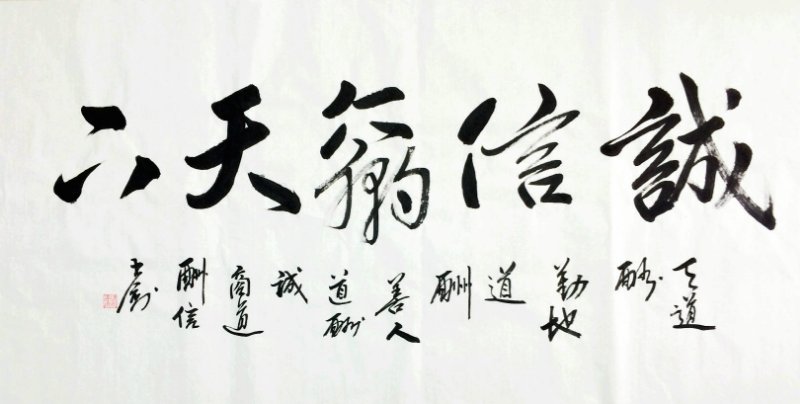 誠信贏天下
天道酬勤地道酬善人道酬誠商道酬信